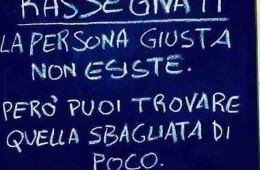 RASSEGNATI
LA PERSONA GIUSTA
NON ESISTE.
PERÒ PUOI TROVARE
QUELLA SBAGLIATA DI
POCO.